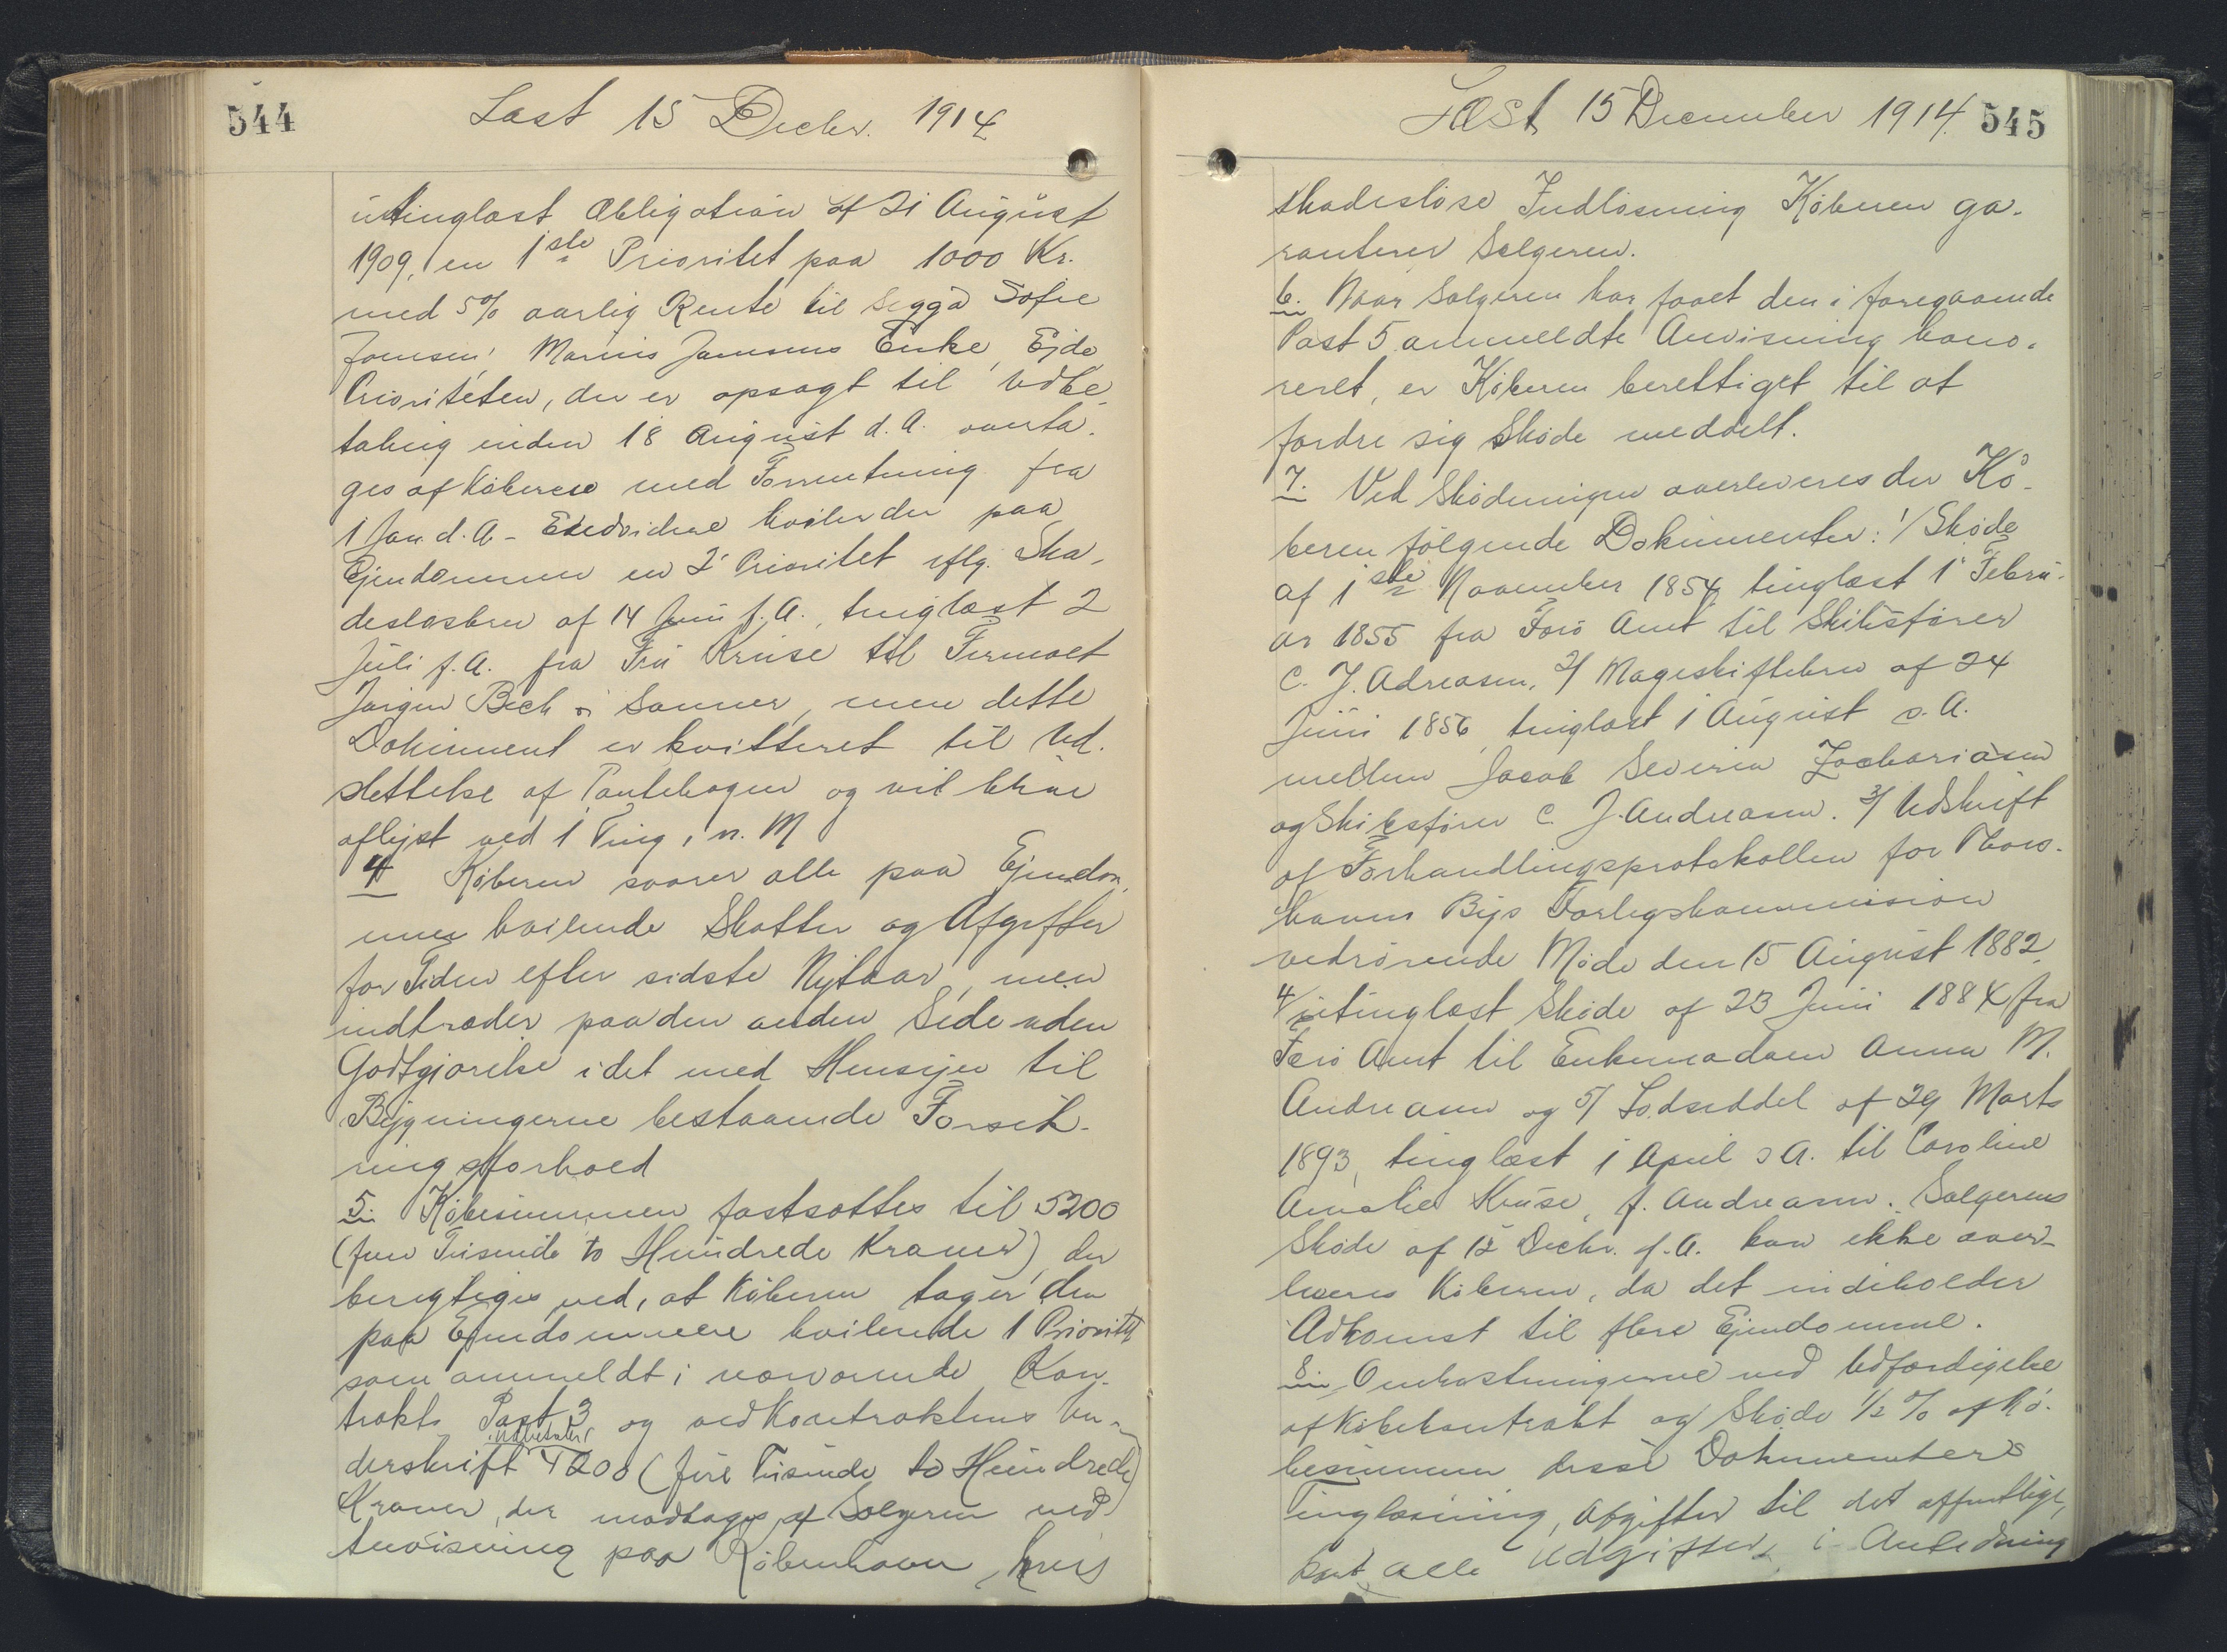 544
Læst 15 Decbr. 1914
utinglæst Obligation af 21 August
1909, en 1ste Prioritet paa 1000 Kr.
med 5% aarlig Rente til Sigga Sofie
Joensen, Marius Joensens Enke, Ejde
Prioriteten, der er opsagt til Udbe-
taling inden 18 August d.A. overta-
ges af Køberen med Forrentning fra
1 Jan d.A. - Endvidere hviler der paa
Ejendommen en 2' Prioritet iflg. Ska-
desløsbrev af 14 Juni f.A., tinglæst 2
Juli f.A. fra Fru Kruse til Firmaet
Jørgen Bech & Sønner, men dette
Dokument er kvitteret til Ud-
slettelse af Pantebogen og vil blive
aflyst ved 1 Ting i n. M
4 Køberen svarer alle paa Ejendom-
men hvilende Skatter og Afgifter
for Tiden efter sidste Nytaar, men
indtræder paa den anden Side uden
Godtgjørelse i det med Hensyn til
Bygningerne bestaaende Forsik-
ringsforhold
5. Købesummen fastsættes til 5200
(fem Tusinde to Hundrede Kroner), der
berigtiges ved, at Køberen tager den
paa Ejendommen hvilende 1 Prioritet
som anmeldt i nærværende Kon-
trakts Post 3 og ved Kontraktens Un-
udbetaler
derskrift 4200 (fire Tusinde to Hundrede)
Kroner, der modtages af Sælgeren ved
Anvisning paa København, hvis
Læst 15 December 1914. 545
skadesløse Indløsning Køberen ga-
ranterer Sælgeren.
6. Naar Sælgeren har faaet den i foregaaende
Post 5 anmeldte Anvisning hono-
reret, er Køberen berettiget til at
fordre sig Skøde meddelt.
7. Ved Skødningen overleveres der Kø-
beren følgende Dokumenter: 1/ Skøde
af 1ste November 1854 tinglæst 1' Febru-
ar 1855 fra Færø Amt til Skibsfører
C. J. Adreasen, 2/ Mageskiftebrev af 24
Juni 1856, tinglæst 1 August s.A.
mellem Jacob Severin Zachariasen
og Skibsfører C. J. Andreasen. 3/ Udskrift
af Forhandlingsprotokollen for Thors-
havns Byes Forligskommission
vedrørende Møde den 15 August 1882,
4/ utinglæst Skøde af 23 Juni 1884 fra
Færø Amt til Enkemadam Anna M.
Andreasen og 5/ Lodseddel af 29 Marts
1893, tinglæst 1 April s A. til Caroline
Amalie Kruse, f. Andreasen. Sælgerens
Skøde af 12 Decbr. f.A. kan ikke over-
leveres Køberen, da det indeholder
Adkomst til flere Ejendomme.
8. Omkostningerne ved Udfærdigelse
af Købekontrakt og Skøde ½ % af Kø-
besummen disse Dokumenters
Tinglæsning, Afgifter til det offentlige,
kort alle Udgifter i Anledning